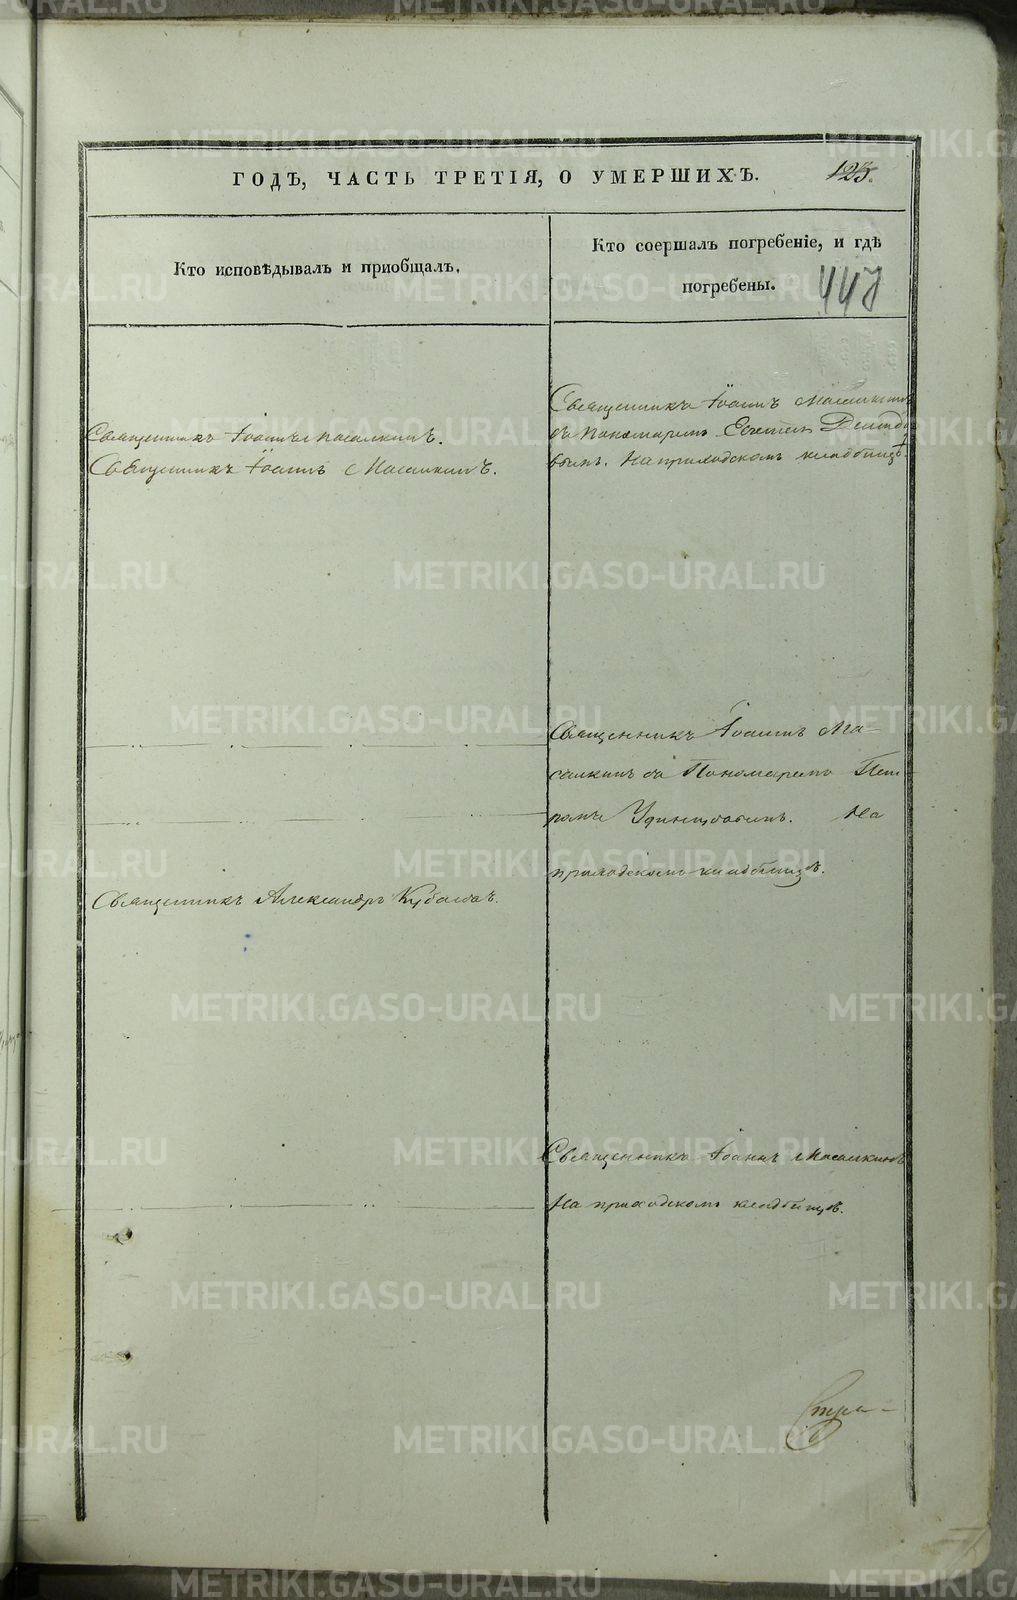 ГОДЪ, ЧАСТЬ ТРЕТІЯ, О УМЕРШИХЪ. 125.
Кто исповѣдывалъ и приобщалъ.
Кто соершалъ погребеніе, и гдѣ
погребены.
447
Священникъ Іоаннъ Масалкинъ.
Священникъ Іоаннъ Масалкинъ.
Священникъ Іоаннъ Масалкинъ
съ Пономаремъ
вымъ. На приходскомъ кладбищѣ.
Священникъ Іоаннъ Ма-
салкинъ съ Пономаремъ Пет-
ромъ Удинцовымъ. На
приходскомъ кладбищѣ.
Священникъ Александръ
Священникъ Іоаннъ Масалкинъ
На приходскомъ кладбищѣ.
METRIKI.GASO-URAL.RU